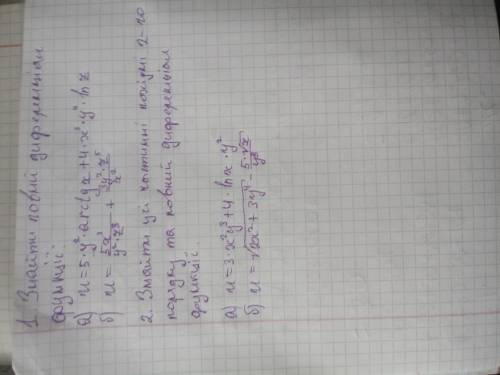 1. Знайти повний диференціал
функції:
а) u = 5·y²·arcctgx + 4·x³·y⁴·ln x
б) u = 5x³/(y²·z³) + 3y²·z⁵/x²
2. Знайти усі частинні похідні 2-го
порядку та повний диференціал
функції.
а) u = 3·x²y³ + 4·ln x·y²
б) u = √(2x² + 3y⁴) - 5·√x/y³